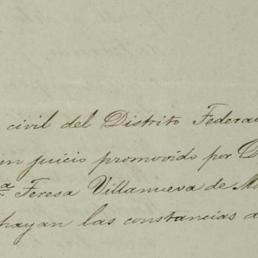 civil del Distrito Federa
en juicio promovido por D
ª Teresa Villanueva de M
hayan las constancias d